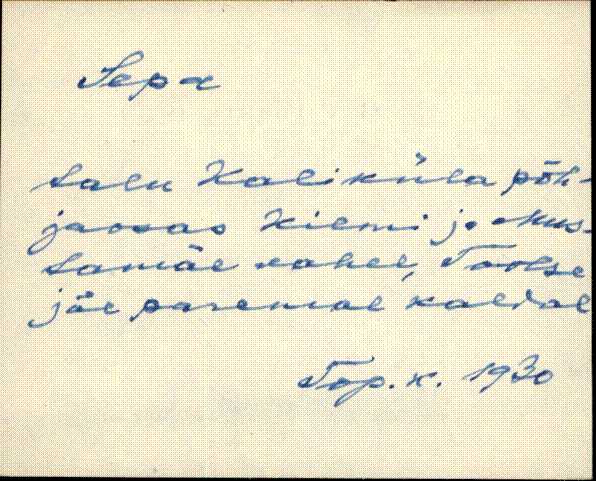 Sepa
talu Kaliküla põh-
jaosas Kilemi ja Mus-
tamäe vahel, Toolse
jõe paremal kaldal
Top. k. 1930